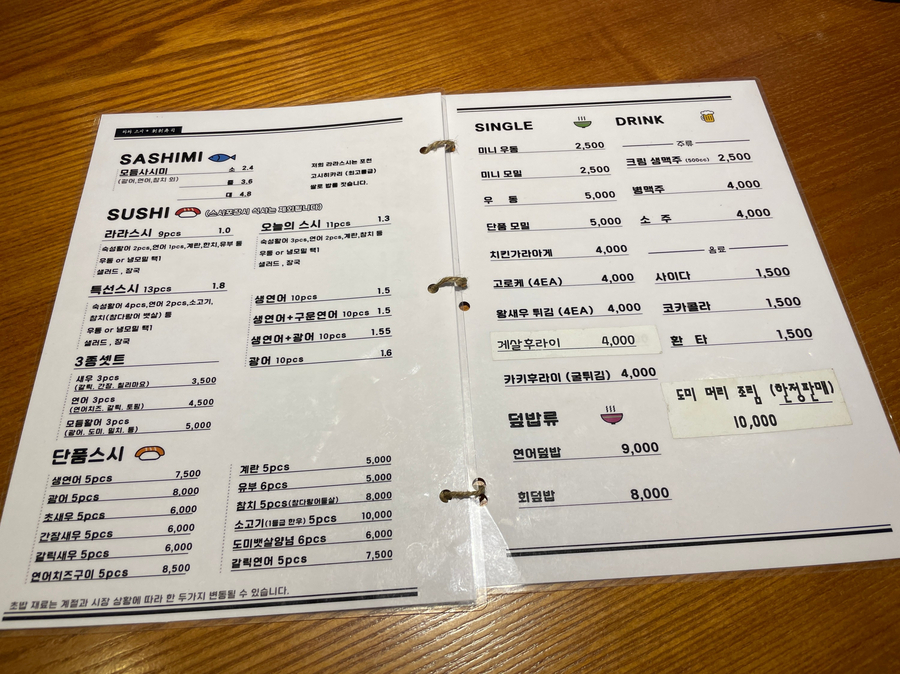 SASHIMI
모듬사시미 소 2.4
(광어,연어,참치 외) 중 3.6
대 4.8
저희 라라스시는 포천
고시히카리 (최고등급)
쌀로 밥을 짓습니다.
SUSHI (스시포장시 식사는 제외됩니다)
라라스시 9pcs 1.0
숙성활어 2pcs,연어 1pcs,계란,한치,유부 등
우동 or 냉모밀 택1
샐러드 , 장국
특선스시 13pcs 1.8
숙성활어 4pcs,연어 2pcs,소고기,
참치(참다랑어 뱃살) 등
우동 or 냉모밀 택1
샐러드 , 장국
3종셋트
새우 3pcs 3,500
(갈릭, 간장, 칠리마요)
연어 3pcs 4,500
(연어치즈, 갈릭, 토핑)
모듬활어 3pcs 5,000
(광어, 도미, 밀치, 등)
오늘의 스시 11pcs 1.3
숙성활어 3pcs,연어 2pcs,계란,참치 등
우동 or 냉모밀 택1
샐러드 , 장국
생연어 10pcs 1.5
생연어+구운연어 10pcs 1.5
생연어+광어 10pcs 1.55
광어 10pcs 1.6
단품스시
생연어 5pcs 7,500
광어 5pcs 8,000
초새우 5pcs 6,000
간장새우 5pcs 6,000
갈릭새우 5pcs 6,000
연어치즈구이 5pcs 8,500
계란 5pcs 5,000
유부 6pcs 5,000
참치 5pcs(참다랑어등살) 8,000
소고기(1등급 한우) 5pcs 10,000
도미뱃살양념 6pcs 6,000
갈릭연어 5pcs 7,500
초밥 재료는 계절과 시장 상황에 따라 한 두가지 변동될 수 있습니다.
SINGLE
미니 우동 2,500
미니 모밀 2,500
우 동 5,000
단품 모밀 5,000
치킨가라아게 4,000
고로케 (4EA) 4,000
왕새우 튀김 (4EA) 4,000
게살후라이 4,000
카키후라이 (굴튀김) 4,000
덮밥류
연어덮밥 9,000
회덮밥 8,000
DRINK
주류
크림 생맥주 (500cc) 2,500
병맥주 4,000
소 주 4,000
음료
사이다 1,500
코카콜라 1,500
환 타 1,500
도미 머리 조림 (한정판매)
10,000